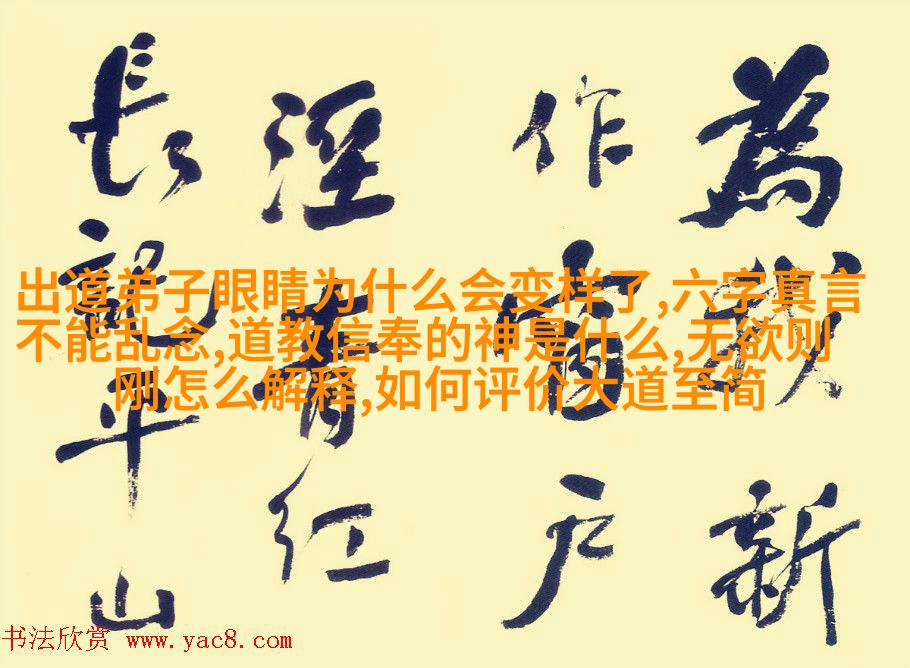 為 新
作窗户
青红
長 平山
出道弟子眼睛为什么会变样了,六字真言
不能乱念,道教信奉的神是什么,无欲则
刚怎么解释,如何评价大道至简
书法欣赏 www.yac8.com